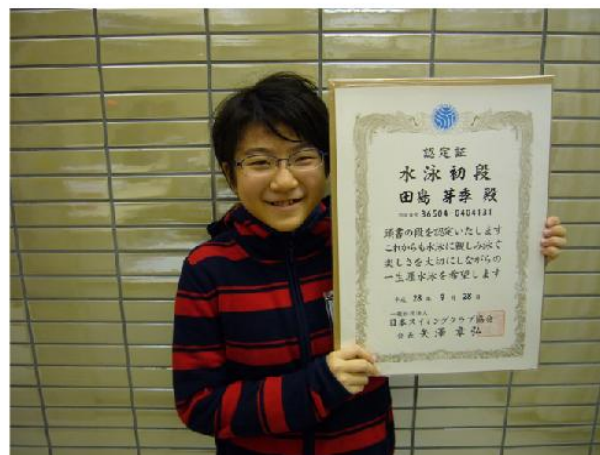 認定証
水泳初段
田島 芽季 殿
36504-0404131
頭書の段を認定いたします
これからも水泳に親しみ泳ぐ
楽しさを大切にしながらの
一生涯水泳を希望します
平成 28年 9月 28日
一般社団法人
日本スイミングクラブ協会
会長 矢澤 章弘